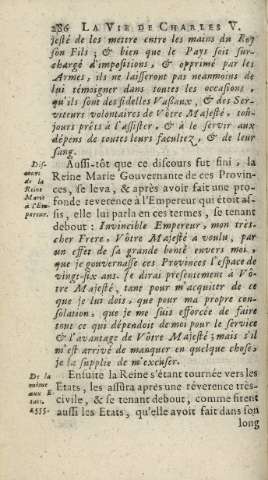 286 LA VIE DE CHARLES V.
jesté de les mettre entre les mains du Roy
son Fils ; & bien que le Pays soit sur-
chargé d'impositions, & opprimé par les
Armes, ils ne laisseront pas neanmoins de
lui témoigner dans toutes les occasions,
qu'ils sont des fidelles Vassaux, & des Ser-
viteurs volontaires de Vôtre Majesté, toû-
jours prêts à l'assister, & à le servir aux
dépens de toutes leurs facultez, & de leur
sang.
Dis-
cours
de la
Reine
Marie
à l'Em-
pereur.
Aussi-tôt que ce discours fut fini, la
Reine Marie Gouvernante de ces Provin-
ces, se leva, & après avoir fait une pro-
fonde reverence à l'Empereur qui étoit as-
sis, elle lui parla en ces termes, se tenant
debout : Invincible Empereur, mon très-
cher Frere, Vôtre Majesté a voulu, par
un effet de sa grande bonté envers moi,
que je gouvernasse ces Provinces l'espace de
vingt-six ans. Je dirai presentement à Vô-
tre Majesté, tant pour m'acquiter de ce
que je lui dois, que pour ma propre con-
solation, que je me suis efforcée de faire
tout ce qui dépendoit de moi pour le service
& l'avantage de Vôtre Majesté ; mais s'il
m'est arrivé de manquer en quelque chose,
je la supplie de m'excuser.
De la
même
aux E-
tats.
1555.
Ensuite la Reine s'étant tournée vers les
Etats, les assûra après une réverence très-
civile, & se tenant debout, comme firent
aussi les Etats, qu'elle avoit fait dans son
long